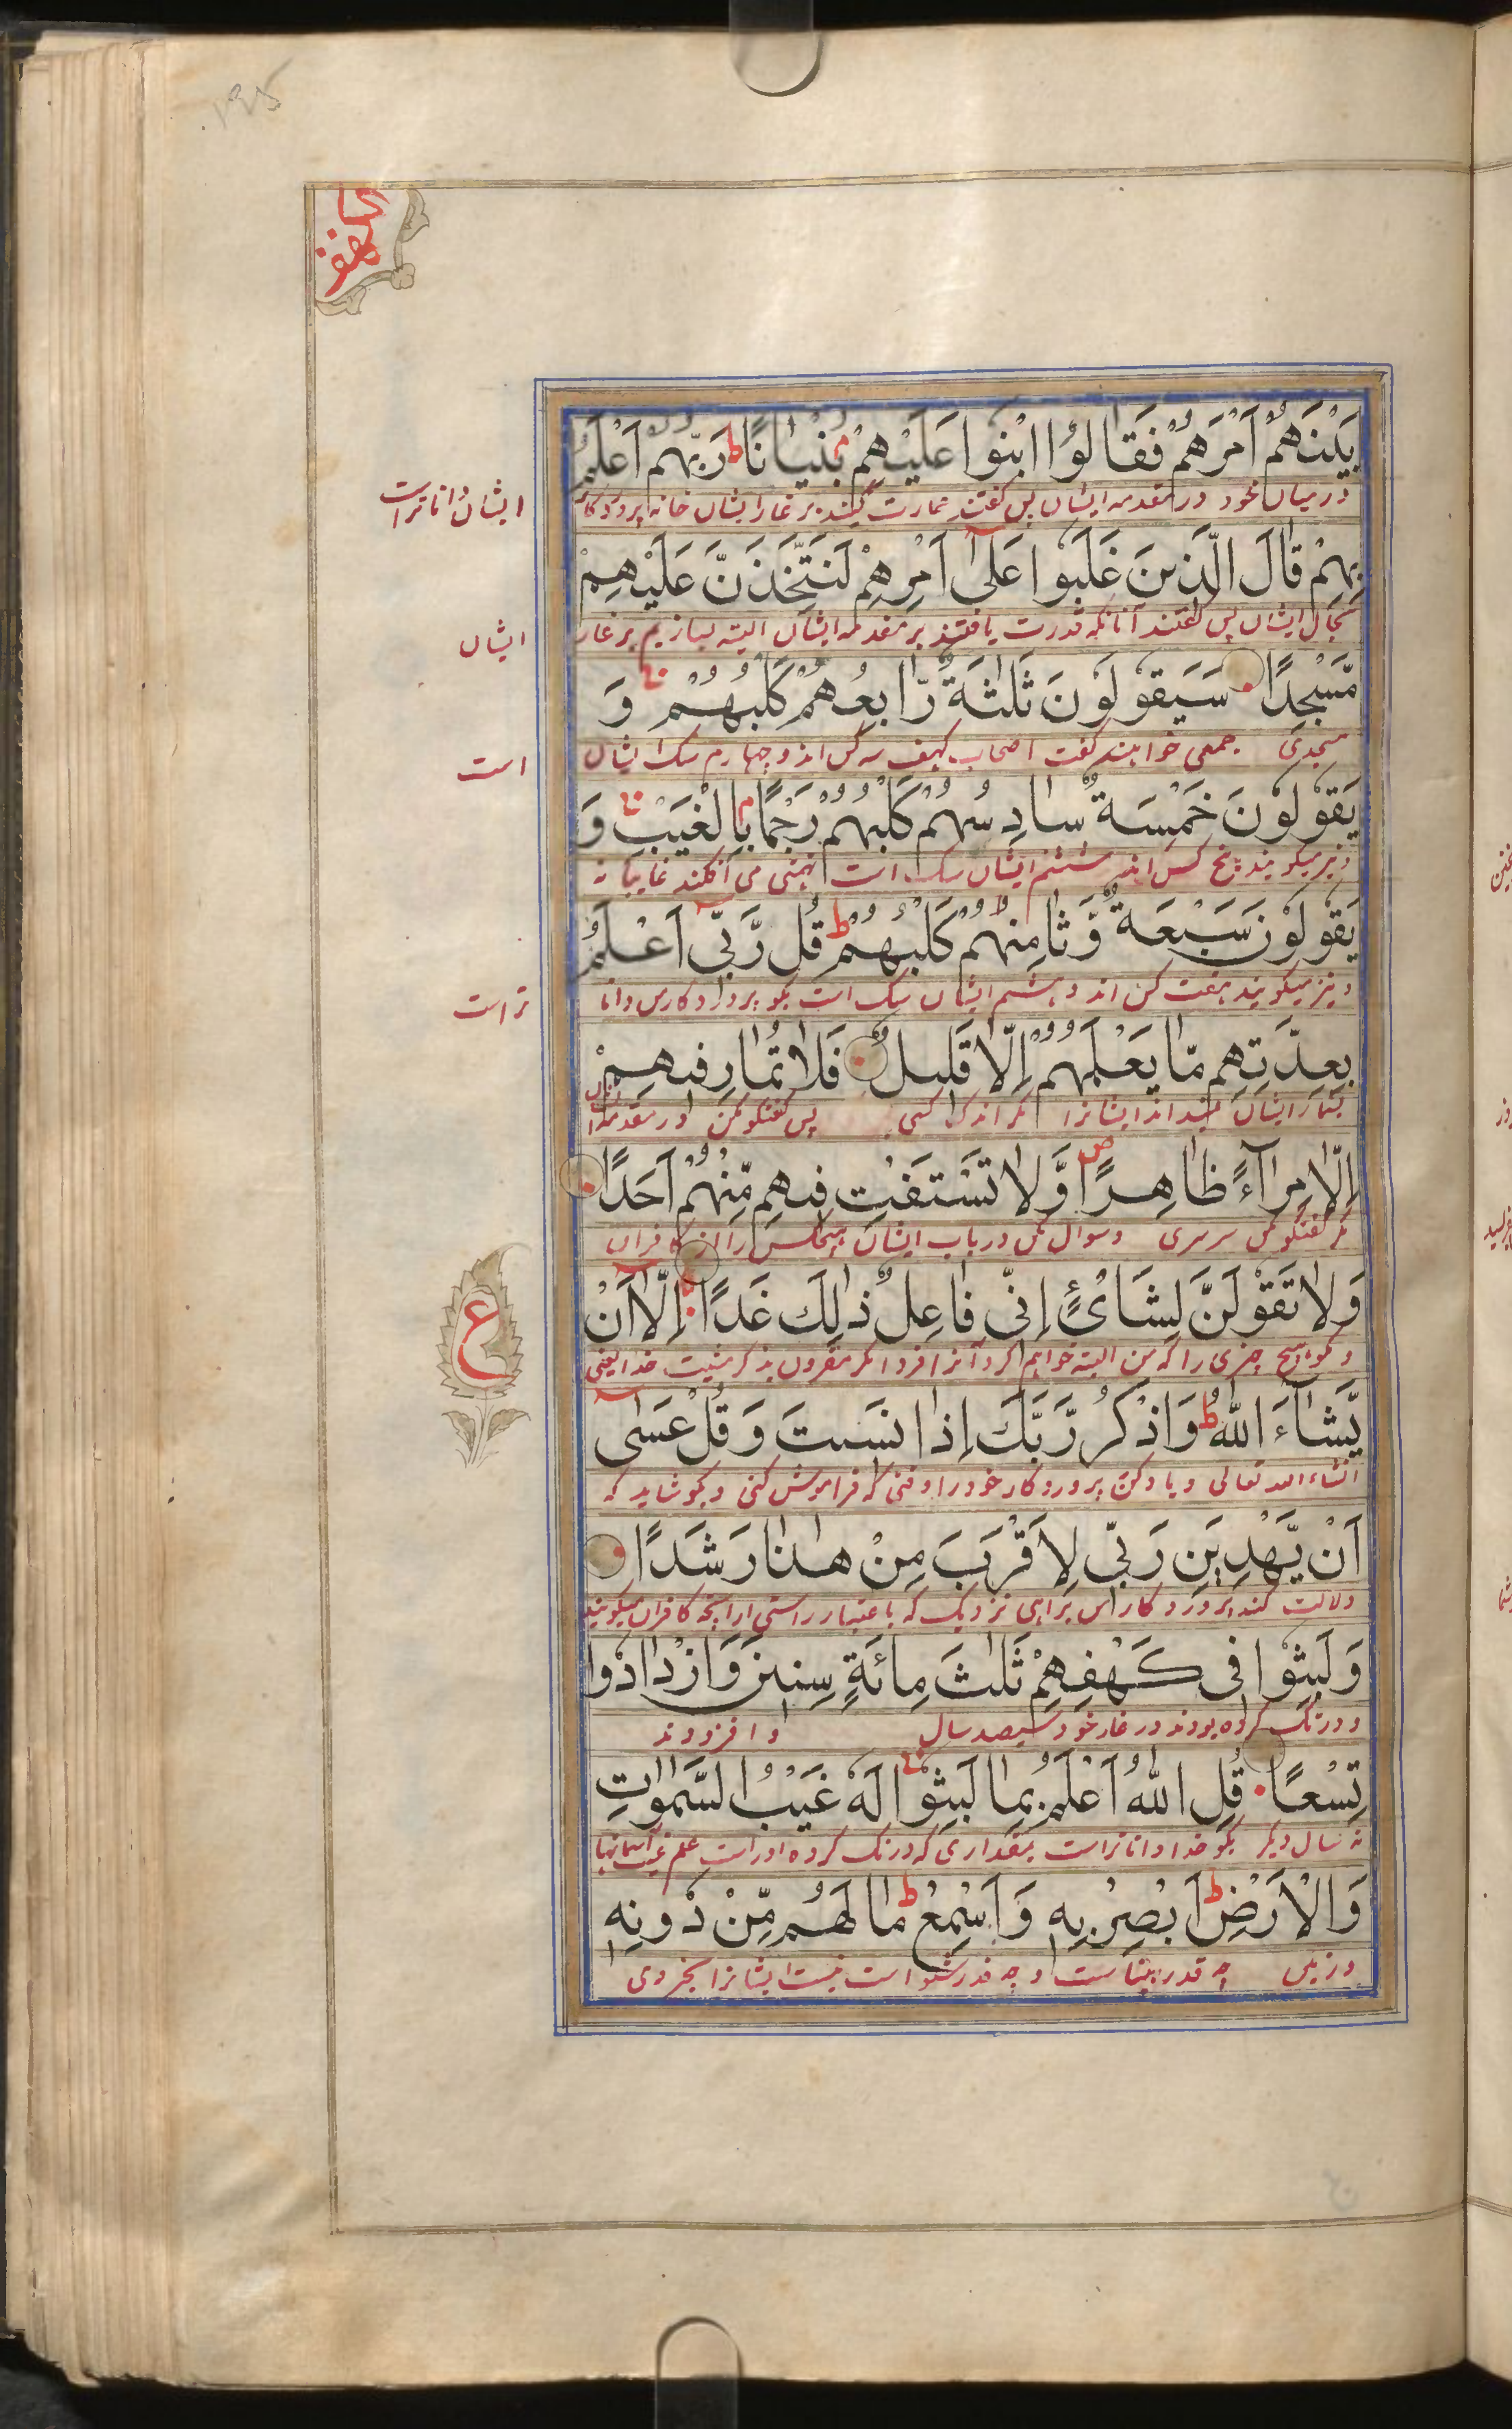 الكهف
بَيْنَهُمْ اَمْرَهُمْ فَقَالُوا ابْنُوا عَلَيْهِمْ بُنْيَانًا ط رَبُّهُمْ اَعْلَمُ
در میان خود در مقدمه ایشان پس گفتند عمارت کنید بر غار ایشان خانه پروردگار
ایشان داناتر است
بِهِمْ قَالَ الَّذِينَ غَلَبُوا عَلٰى اَمْرِهِمْ لَنَتَّخِذَنَّ عَلَيْهِمْ
بحال ایشان پس گفتند آنانکه قدرت یافتند بر مقدمه ایشان البته بسازیم بر غار
ایشان
مَّسْجِدًا سَيَقُولُونَ ثَلٰثَةٌ رَّابِعُهُمْ كَلْبُهُمْ وَ
مسجدی جمعی خواهند گفت اصحاب کهف سه کس اند و چهارم سگ ایشان
است
يَقُولُونَ خَمْسَةٌ سَادِسُهُمْ كَلْبُهُمْ رَجْمًا بِالْغَيْبِ وَ
و نیز میگویند پنج کس اند ششم ایشان سگ است می افکند غایبانه
يَقُولُونَ سَبْعَةٌ وَّثَامِنُهُمْ كَلْبُهُمْ ط قُل رَّبِّى اَعْلَمُ
و نیز میگویند هفت کس اند و هشتم ایشان سگ است بگو پروردگار من دانا
تر است
بِعِدَّتِهِم مَّا يَعْلَمُهُمْ اِلَّا قَلِيلٌ فَلَا تُمَارِ فِيهِمْ
بشمار ایشان نمیداند ایشانرا مگر اندک کسی پس گفتگو مکن در مقدمه ایشان
اِلَّا مِرَآءً ظَاهِرًا ص وَّلَا تَسْتَفْتِ فِيهِم مِّنْهُمْ اَحَدًا
مگر گفتگوی سرسری و سوال مکن در باب ایشان هیچکس را از کافران
وَلَا تَقُولَنَّ لِشَائْءٍ اِنِّى فَاعِلٌ ذٰلِكَ غَدًا اِلَّا اَنْ
و مگو هیچ چیزی را که من البته خواهم کرد آنرا فردا مگر مقرون بذکر مشیت خدا یعنی
ع
يَّشَآءَ اللّٰهُ ط وَاذْكُر رَّبَّكَ اِذَا نَسِيتَ وَقُلْ عَسٰى
انشاء الله تعالی و یاد کن پروردگار خود را وقتی که فراموش کنی و بگو شاید که
اَنْ يَّهْدِيَنِ رَبِّى لِاَقْرَبَ مِنْ هٰذَا رَشَدًا
دلالت کند پروردگار من براهی نزدیک که باعتبار راستی از آنچه کافران میگویند
وَلَبِثُوا فِى كَهْفِهِمْ ثَلٰثَ مِائَةٍ سِنِينَ وَازْدَادُوا
و درنگ کرده بودند در غار خود سیصد سال و افزودند
تِسْعًا قُلِ اللّٰهُ اَعْلَمُ بِمَا لَبِثُوا لَهٗ غَيْبُ السَّمٰوَاتِ
نه سال دیگر بگو خدا داناتر است بمقداری که درنگ کرده او راست علم غیب آسمانها
وَالْاَرْضِ ط اَبْصِرْ بِهٖ وَاَسْمِعْ ط مَا لَهُم مِّنْ دُونِهٖ
و زمین چه قدر بیناست و چه قدر شنواست نیست ایشانرا بجز وی